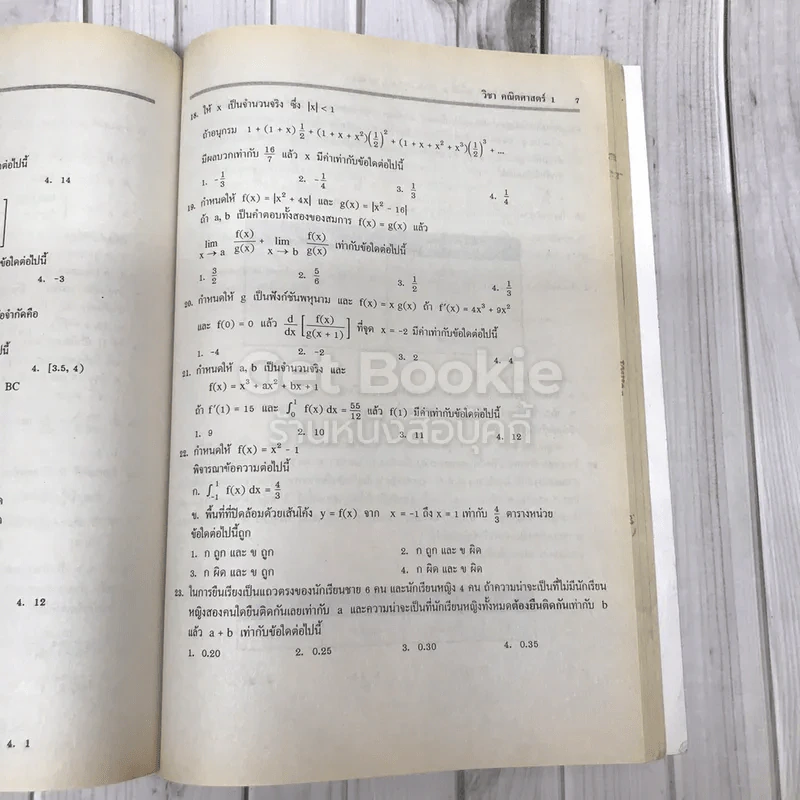 วิชา คณิตศาสตร์ 1 7
18. ให้ x เป็นจำนวนจริง ซึ่ง |x| < 1
ถ้าอนุกรม 1 + (1 + x) 1/2 + (1 + x + x²)(1/2)² + (1 + x + x² + x³)(1/2)³ + ...
มีผลบวกเท่ากับ 16/7 แล้ว x มีค่าเท่ากับข้อใดต่อไปนี้
1. -1/3 2. -1/4 3. 1/3 4. 1/4
19. กำหนดให้ f(x) = |x² + 4x| และ g(x) = |x² - 16|
ถ้า a, b เป็นคำตอบทั้งสองของสมการ f(x) = g(x) แล้ว
lim x → a f(x)/g(x) + lim x → b f(x)/g(x) เท่ากับข้อใดต่อไปนี้
1. 3/2 2. 5/6 3. 1/2 4. 1/3
20. กำหนดให้ g เป็นฟังก์ชันพหุนาม และ f(x) = x g(x) ถ้า f'(x) = 4x³ + 9x²
และ f(0) = 0 แล้ว d/dx [f(x)/g(x + 1)] ที่จุด x = -2 มีค่าเท่ากับข้อใดต่อไปนี้
1. -4 2. -2 3. 2 4. 4
21. กำหนดให้ a, b เป็นจำนวนจริง และ
f(x) = x³ + ax² + bx + 1
ถ้า f'(1) = 15 และ ∫₀¹ f(x) dx = 55/12 แล้ว f(1) มีค่าเท่ากับข้อใดต่อไปนี้
1. 9 2. 10 3. 11 4. 12
22. กำหนดให้ f(x) = x² - 1
พิจารณาข้อความต่อไปนี้
ก. ∫₋₁¹ f(x) dx = 4/3
ข. พื้นที่ที่ปิดล้อมด้วยเส้นโค้ง y = f(x) จาก x = -1 ถึง x = 1 เท่ากับ 4/3 ตารางหน่วย
ข้อใดต่อไปนี้ถูก
1. ก ถูก และ ข ถูก 2. ก ถูก และ ข ผิด
3. ก ผิด และ ข ถูก 4. ก ผิด และ ข ผิด
23. ในการยืนเรียงเป็นแถวตรงของนักเรียนชาย 6 คน และนักเรียนหญิง 4 คน ถ้าความน่าจะเป็นที่ไม่มีนักเรียน
หญิงสองคนใดยืนติดกันเลยเท่ากับ a และความน่าจะเป็นที่นักเรียนหญิงทั้งหมดต้องยืนติดกันเท่ากับ b
แล้ว a + b เท่ากับข้อใดต่อไปนี้
1. 0.20 2. 0.25 3. 0.30 4. 0.35
4. 14
4. -3
4. [3.5, 4)
BC
4. 12
4. 1
Get Bookie
ร้านหนังสือบุคกี้